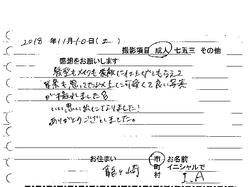 2018年11月10日(土)
撮影項目 成人 七五三 その他
感想をお願いします
髪型もメイクも素敵にしていただいてもらえて
背景も思っていた以上に可愛くて良い写真
が撮れました
いい思い出になりました!
ありがとうございました。
お住まい 龍ヶ崎 市 町 村
お名前 イニシャルで I.A